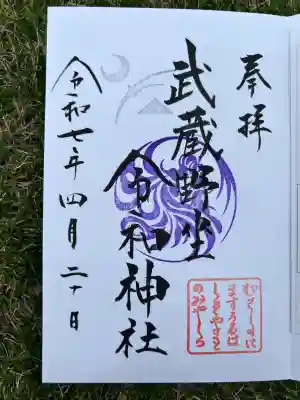 奉拝
武蔵野坐
令和神社
令和七年四月二十日
むさしのに
ますうるは
しきやまと
のみやしろ